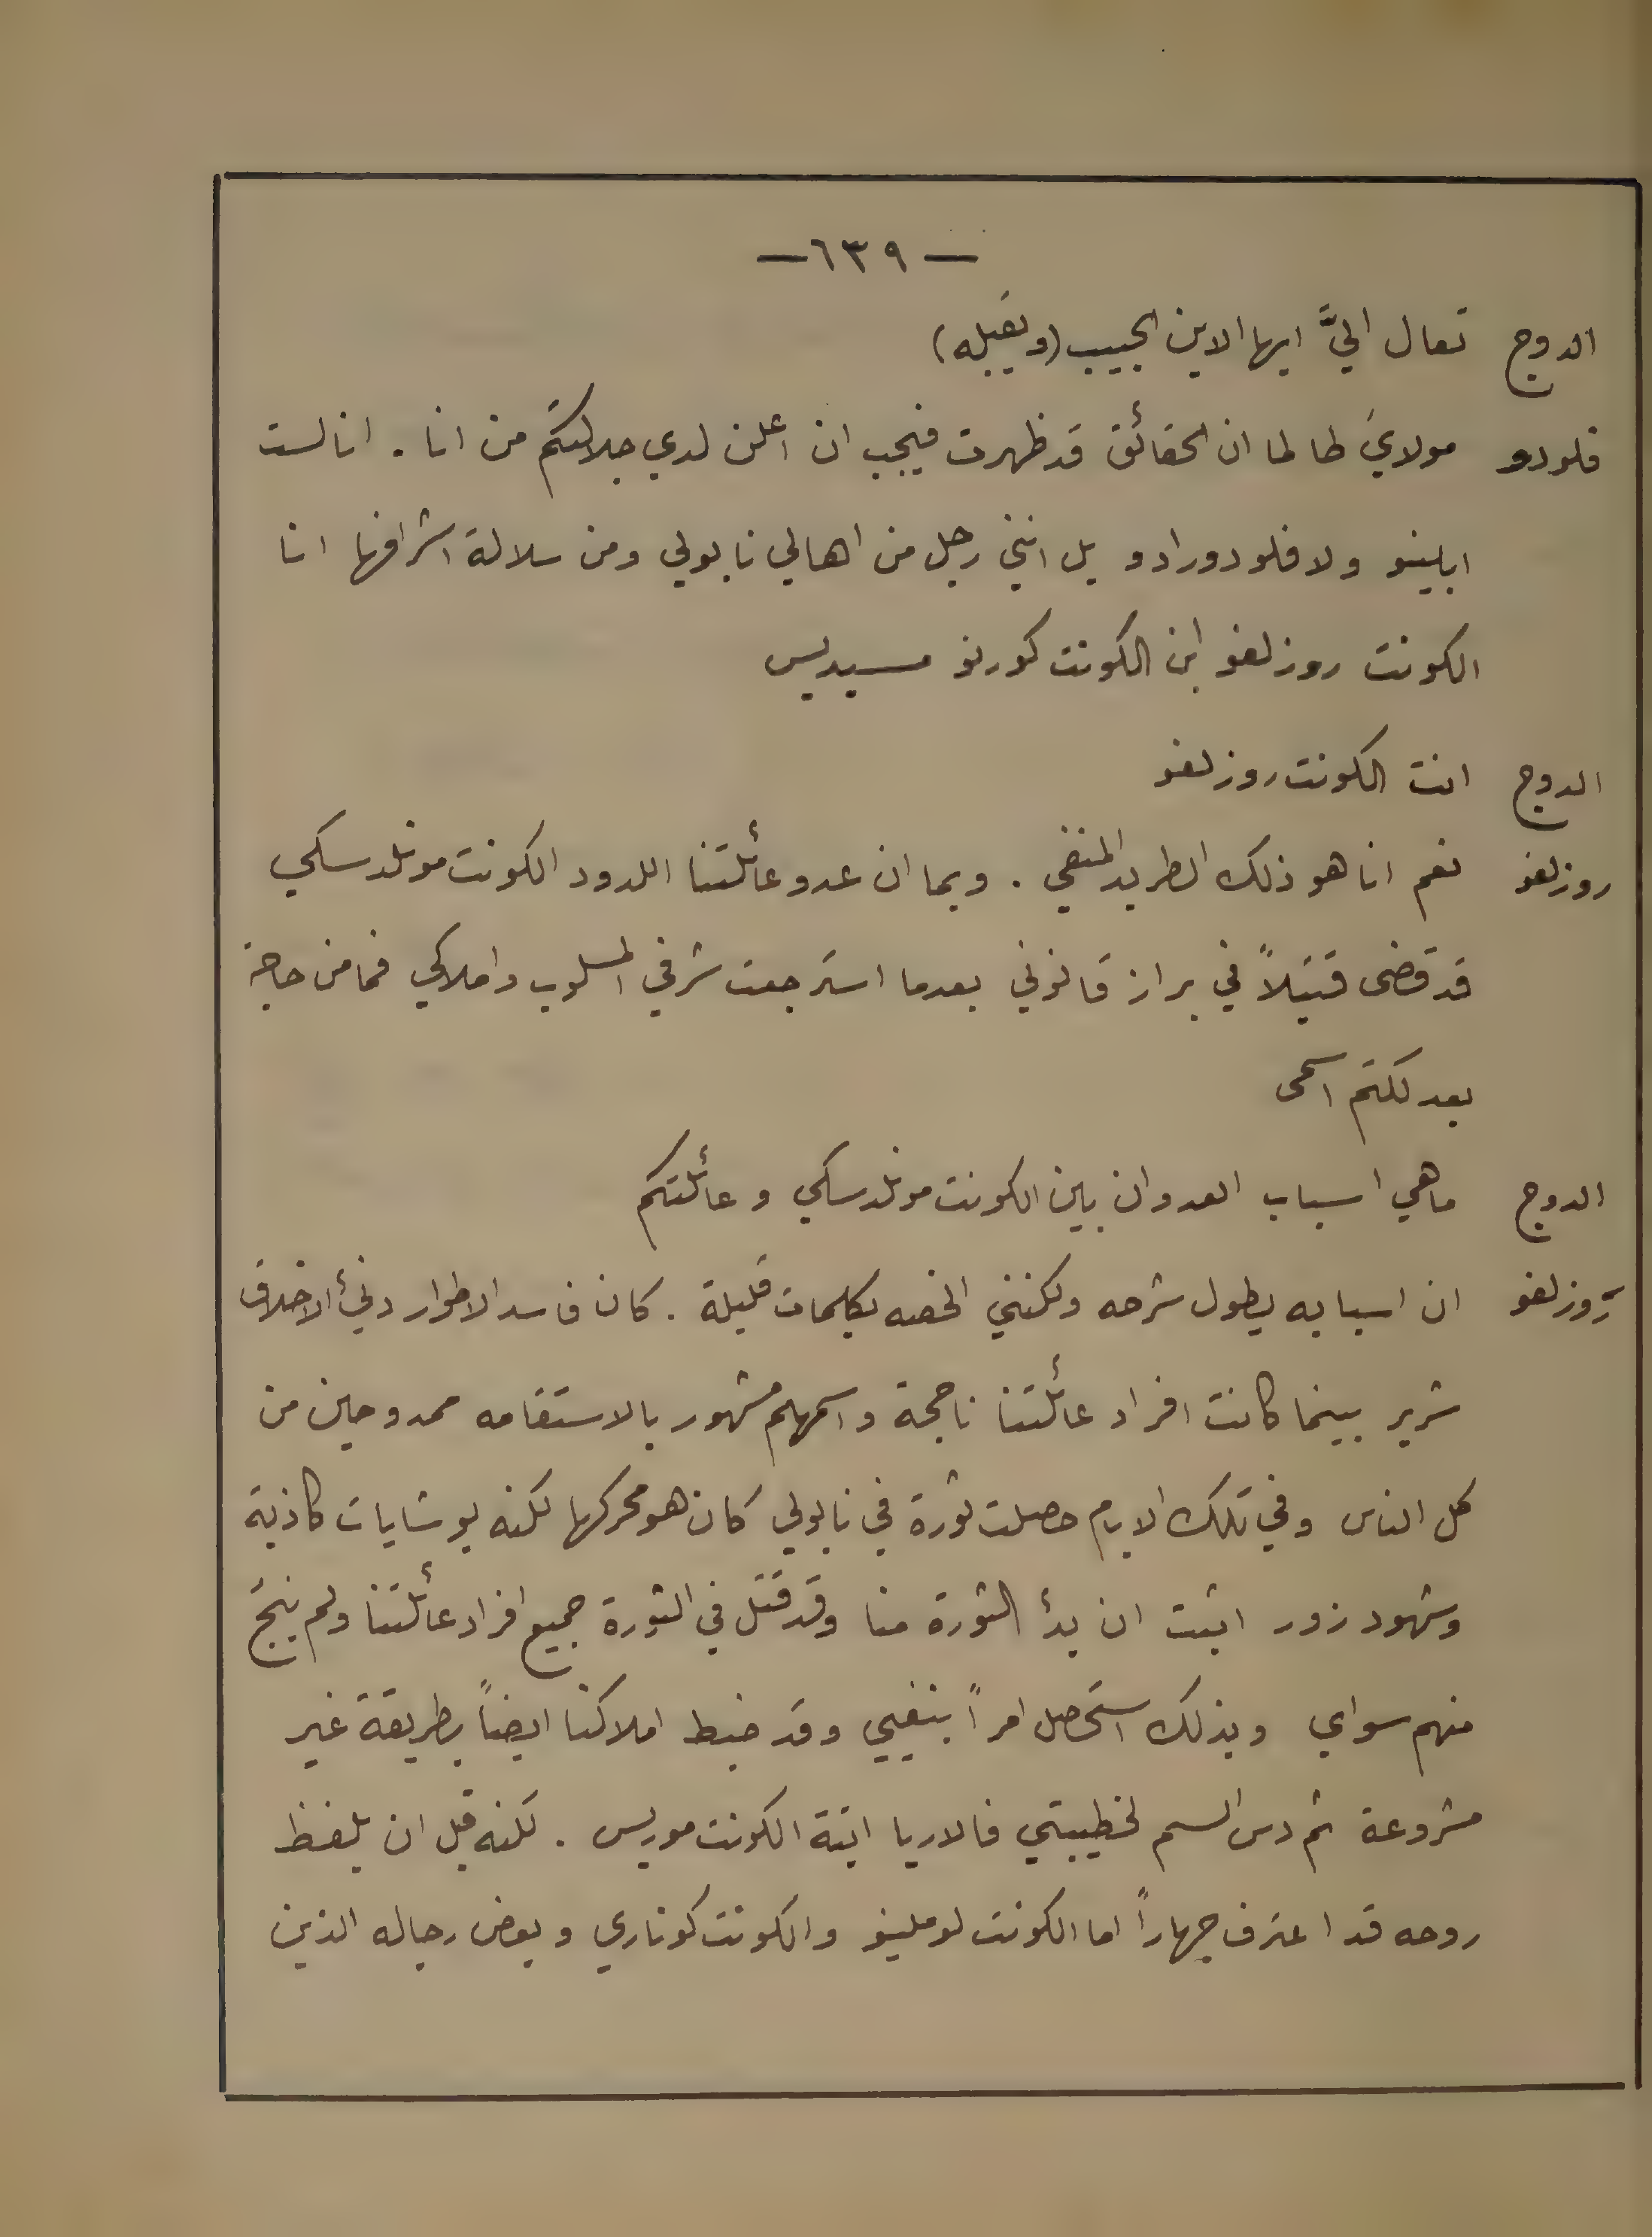 — ٦٣٩ —
الدوج تعال اليَّ ايها الابن الحبيب (ويقبله)
فلودو مولايَ طالما ان الحقائق قد ظهرت فيجب ان اعلن لدي جلالتكم من انا . انا لست
ابلينو ولا فلودورادو بل انني رجل من اهالي نابولي ومن سلالة اشرافها انا
الكونت روزلفو ابن الكونت كورنو مسيديس
الدوج انت الكونت روزلفو
روزلفو نعم انا هو ذلك الطريد المنفي . وبما ان عدو عائلتنا اللدود الكونت مونلدسكي
قد قضى قتيلاً في براز قانوني بعدما استرجعت شرفي المسلوب واملاكي فما من حاجة
بعد لكتم اسمى
الدوج ماهي اسباب العدوان بين الكونت مونلدسكي وعائلتكم
روزلفو ان اسبابه يطول شرحه ولكنني الخصه بكلمات قليلة . كان فاسد الاطوار دنيْ الاخلاق
شرير بينما كانت افراد عائلتنا ناجحة واسمهم مشهور بالاستقامه ممدوحين من
كل الناس وفي تلك الايام حصلت ثورة في نابولي كان هو محركها لكنه بوشايات كاذبة
وشهود زور اثبت ان بدأ الثورة منا وقد قتل في الثورة جميع افراد عائلتنا ولم ينج
منهم سواي وبذلك استحصل امراً بنفيي وقد ضبط املاكنا ايضاً بطريقة غير
مشروعة ثم دس السم لخطيبتي فالاريا ابنة الكونت موريس . لكنه قبل ان يلفظ
روحه قد اعترف جهاراً اما الكونت لوملينو والكونت كوناري وبعض رجاله الذين